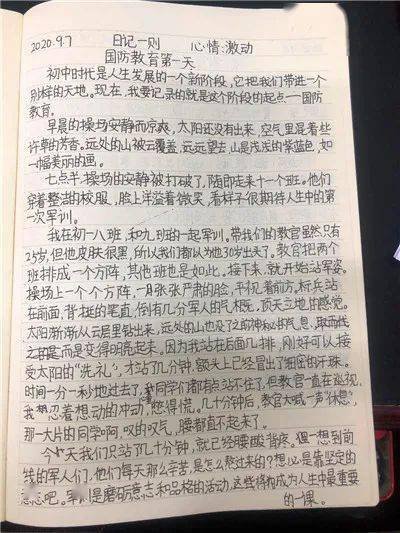 2020.9.7 日记一则 心情:激动
国防教育第一天
初中时代是人生发展的一个新阶段,它把我们带进一个
别样的天地。现在,我要记录的就是这个阶段的起点——国防
教育。
早晨的操场安静而凉爽,太阳还没有出来,空气里混着些
许草的芳香。远处的山被云覆盖,远远望去,山是浅浅的紫蓝色,如
一幅美丽的画。
七点半,操场的安静被打破了,随即走来十一个班。他们
穿着整洁的校服,脸上洋溢着微笑,看样子很期待人生中的第
一次军训。
我在初一八班,和九班的一起军训。带我们的教官虽然只有
25岁,但他皮肤很黑,所以我们都以为他30岁出头了。教官把两个
班排成一个方阵,其他班也是如此,接下来,就开始站军姿。
操场上一个个方阵,一张张严肃的脸,平视着前方,标兵站
在前面,背挺的笔直,倒有几分军人的气概,顶天立地的感觉。
太阳渐渐从云层里钻出来,远处的山也没了之前神秘的气息,取而代
之的是而是变得明亮起来。因为我站在后面几排,刚好可以接
受太阳的“洗礼”,才站了几十分钟,额头上已经冒出了细密的汗珠。
时间一分一秒地过去了,同学们都有点站不住了,但教官一直在巡视,
我想忍着想动的冲动,憋得慌。几十分钟后,教官大喊一声“休息”,
那一大片的同学啊,叹的叹气,腰都直不起来了。
今天我们只站了几十分钟,就已经腰酸背疼。但一想到前
线的军人们,他们每天那么辛苦,是怎么熬过来的?想必是靠坚定的
意志吧。军训是磨砺意志和品格的活动,这些将构成为人生中最重要
的一课。